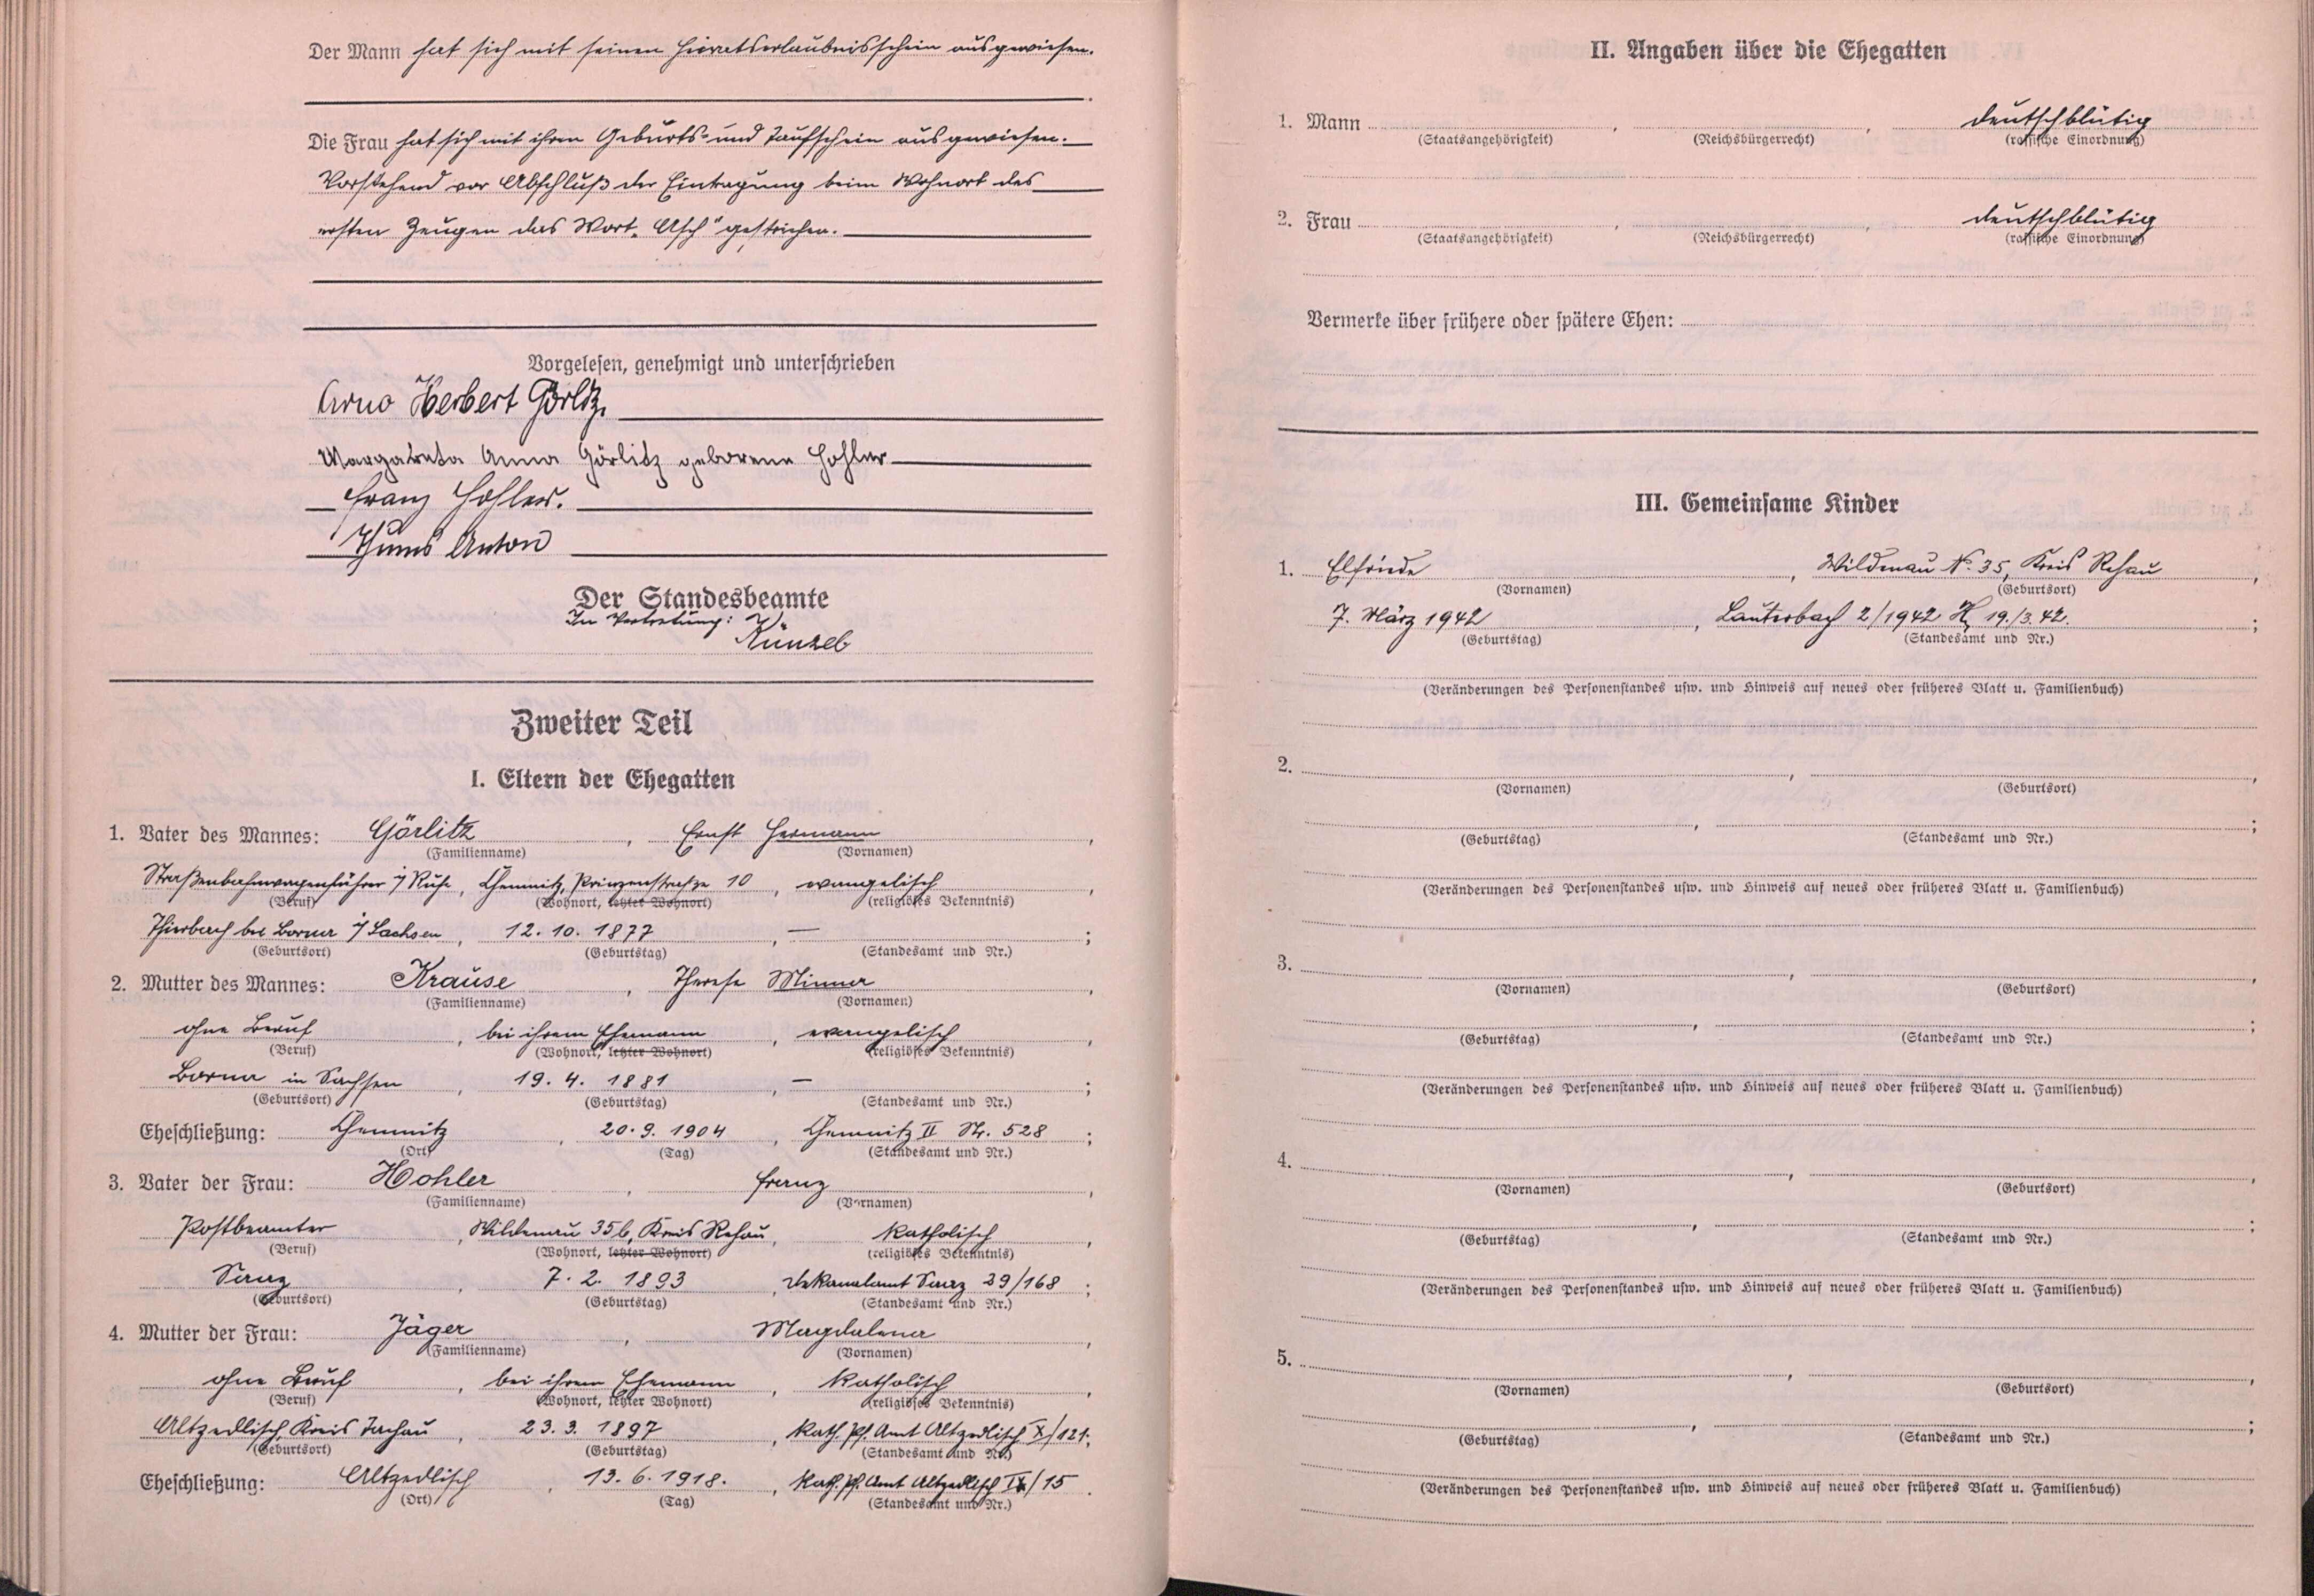 Der Mann hat sich mit seinen Heiratserlaubnisschein ausgewiesen.
Die Frau hat sich mit ihren Geburts- und Taufschein ausgewiesen.
Vorstehend vor Abschluß der Eintragung beim Wohnort des
ersten Zeugen das Wort „Asch" gestrichen.
Vorgelesen, genehmigt und unterschrieben
Arno Herbert Görlitz.
Margareta Anna Görlitz geborene Hohler
Franz Hohler.
Thums Anton
Der Standesbeamte
In Vertretung:
Künzel
Zweiter Teil
I. Eltern der Ehegatten
1. Vater des Mannes: Görlitz, Ernst Hermann,
(Familienname) (Vornamen)
Straßenbahnwagenführer i/Ruhe, Chemnitz, Prinzenstraße 10, evangelisch,
(Beruf) (Wohnort, letzter Wohnort) (religiöses Bekenntnis)
Thierbach bei Borna i/Sachsen, 12. 10. 1877, —;
(Geburtsort) (Geburtstag) (Standesamt und Nr.)
2. Mutter des Mannes: Krause, Therese Minna,
(Familienname) (Vornamen)
ohne Beruf, bei ihrem Ehemann, evangelisch,
(Beruf) (Wohnort, letzter Wohnort) (religiöses Bekenntnis)
Borna in Sachsen, 19. 4. 1881, —;
(Geburtsort) (Geburtstag) (Standesamt und Nr.)
Eheschließung: Chemnitz, 20. 9. 1904, Chemnitz II Nr. 528;
(Ort) (Tag) (Standesamt und Nr.)
3. Vater der Frau: Hohler, Franz,
(Familienname) (Vornamen)
Postbeamter, Wildenau 35b, Kreis Rehau, katholisch,
(Beruf) (Wohnort, letzter Wohnort) (religiöses Bekenntnis)
Saaz, 7. 2. 1893, Dekanalamt Saaz 29/168;
(Geburtsort) (Geburtstag) (Standesamt und Nr.)
4. Mutter der Frau: Jäger, Magdalena,
(Familienname) (Vornamen)
ohne Beruf, bei ihrem Ehemann, katholisch,
(Beruf) (Wohnort, letzter Wohnort) (religiöses Bekenntnis)
Altzedlisch, Kreis Tachau, 23. 3. 1897, kath. Pf. Amt Altzedlisch X/121;
(Geburtsort) (Geburtstag) (Standesamt und Nr.)
Eheschließung: Altzedlisch, 13. 6. 1918., kath. Pf. Amt Altzedlisch IX/15.
(Ort) (Tag) (Standesamt und Nr.)
II. Angaben über die Ehegatten
1. Mann , , deutschblütig
(Staatsangehörigkeit) (Reichsbürgerrecht) (rassische Einordnung)
2. Frau , , deutschblütig
(Staatsangehörigkeit) (Reichsbürgerrecht) (rassische Einordnung)
Vermerke über frühere oder spätere Ehen:
III. Gemeinsame Kinder
1. Elfriede, Wildenau N. 35, Kreis Rehau,
(Vornamen) (Geburtsort)
7. März 1942, Lauterbach 2/1942 19./3. 42.;
(Geburtstag) (Standesamt und Nr.)
(Veränderungen des Personenstandes usw. und Hinweis auf neues oder früheres Blatt u. Familienbuch)
2. , ,
(Vornamen) (Geburtsort)
, ;
(Geburtstag) (Standesamt und Nr.)
(Veränderungen des Personenstandes usw. und Hinweis auf neues oder früheres Blatt u. Familienbuch)
3. , ,
(Vornamen) (Geburtsort)
, ;
(Geburtstag) (Standesamt und Nr.)
(Veränderungen des Personenstandes usw. und Hinweis auf neues oder früheres Blatt u. Familienbuch)
4. , ,
(Vornamen) (Geburtsort)
, ;
(Geburtstag) (Standesamt und Nr.)
(Veränderungen des Personenstandes usw. und Hinweis auf neues oder früheres Blatt u. Familienbuch)
5. , ,
(Vornamen) (Geburtsort)
, ;
(Geburtstag) (Standesamt und Nr.)
(Veränderungen des Personenstandes usw. und Hinweis auf neues oder früheres Blatt u. Familienbuch)